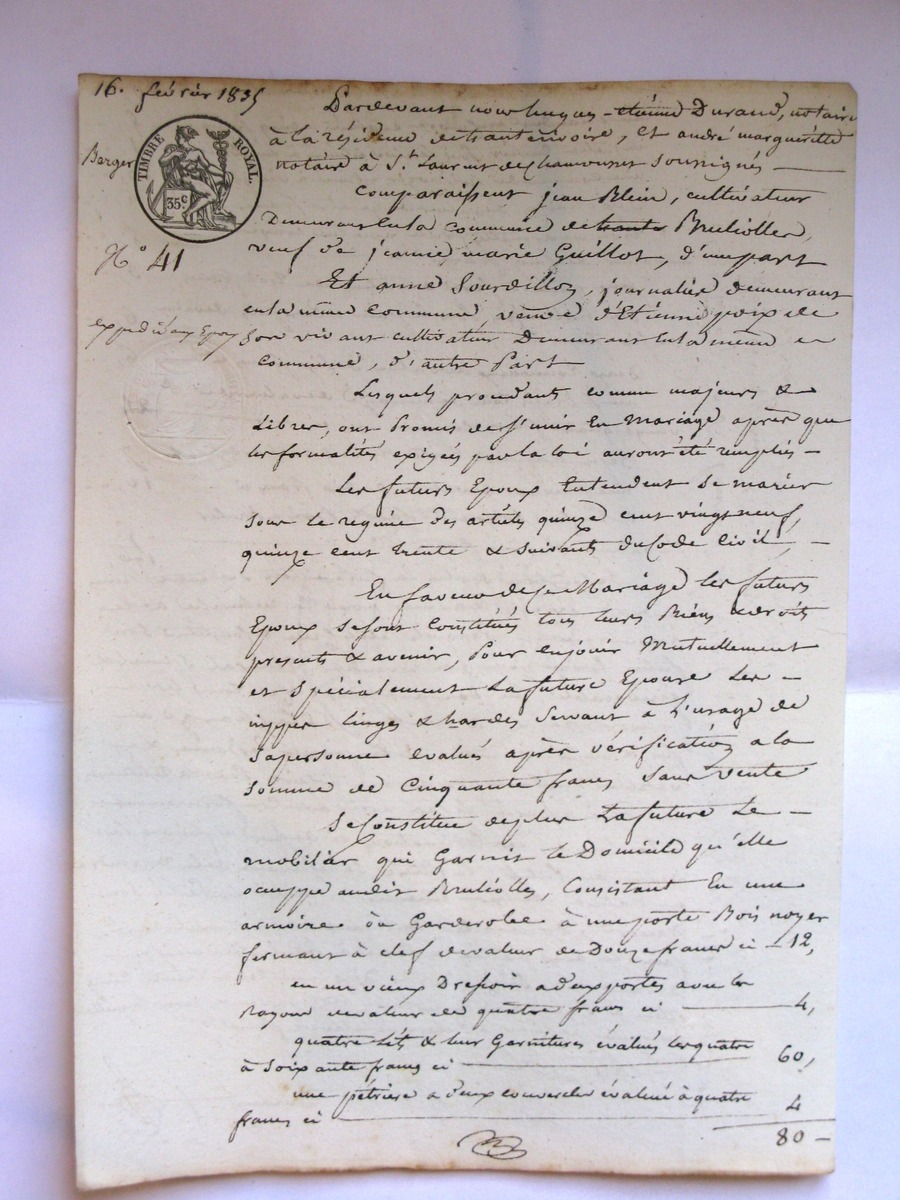 16. février 1835
Pardevant nous hugues-étienne Durand, notaire
à la résidence de st antoine, Et andré marguéritte
Berger
notaire à St. Laurent de chamousset soussignés
TIMBRE ROYAL.
35c.
Comparaissent jean Blein, cultivateur
Demeurant en la commune de haute Bruliolles,
veuf de jeanne marie Guillot, d'une part
N° 41
Et anne Sourdillon, journalière demeurant
en la même commune veuve d'Etienne poix de
expédié aux Epoux
son vivant cultivateur Demeurant en la même
commune, d'autre Part
Lesquels procédants comme majeurs &
Libres, ont Promis de s'unir En Mariage après que
les formalités exigées par la loi auront été remplies –
Les futurs Epoux Entendent se marier
sous le régime des articles quinze cent vingt neuf,
quinze cent trente & suivants du Code Civil, –
En faveur de ce Mariage les futurs
Epoux se sont Constitués tous leurs Biens & droits
présents & avenir, Pour en jouir Mutuellement
et spécialement La future Epouse Les –
nippes linges & hardes servant à l'usage de
sa personne évalués après vérification a la
somme de Cinquante francs sans vente
Se Constitue de plus La future Le –
mobilier qui Garnit le Domicile qu'elle
occuppe audit Bruliolles, Consistant En une
armoire ou Garderobe à une porte Bois noyer
fermant à clef de valeur de Douze francs ci – 12,
en un vieux Dressoir a deux portes avec les
Rayons de valeur de quatre francs ci 4,
quatre Lits & leur Garnitures évalués les quatre
à Soixante francs ci 60,
une pétrière a deux couvercles évalué à quatre
francs ci 4
80 –